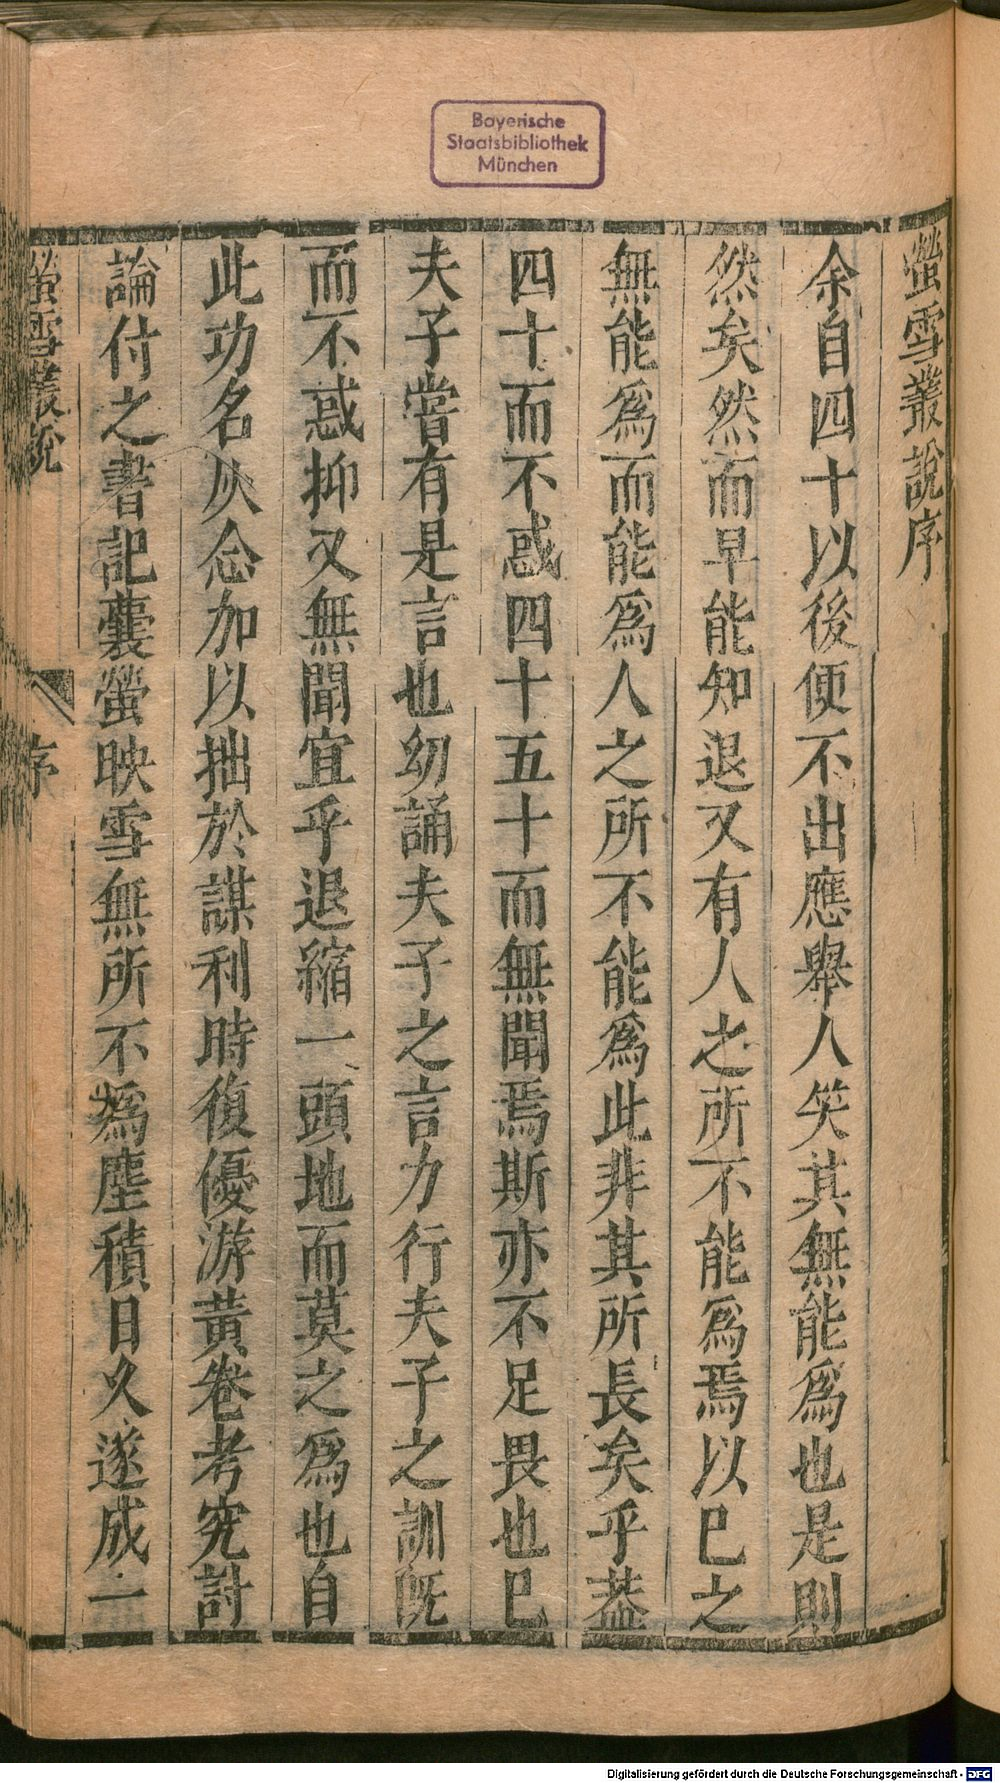 Bayerische
Staatsbibliothek
München
螢雪叢說序
余自四十以後便不出應舉人笑其無能爲也是則
然矣然而早能知退又有人之所不能爲焉以已之
無能爲而能爲人之所不能爲此非其所長矣乎葢
四十而不惑四十五十而無聞焉斯亦不足畏也已
夫子嘗有是言也幼誦夫子之言力行夫子之訓既
而不惑抑又無聞宜乎退縮一頭地而莫之爲也自
此功名灰念加以拙於謀利時復優游黃卷考究討
論付之書記囊螢映雪無所不爲塵積日久遂成一
螢雪叢說
序
Digitalisierung gefördert durch die Deutsche Forschungsgemeinschaft - DFG